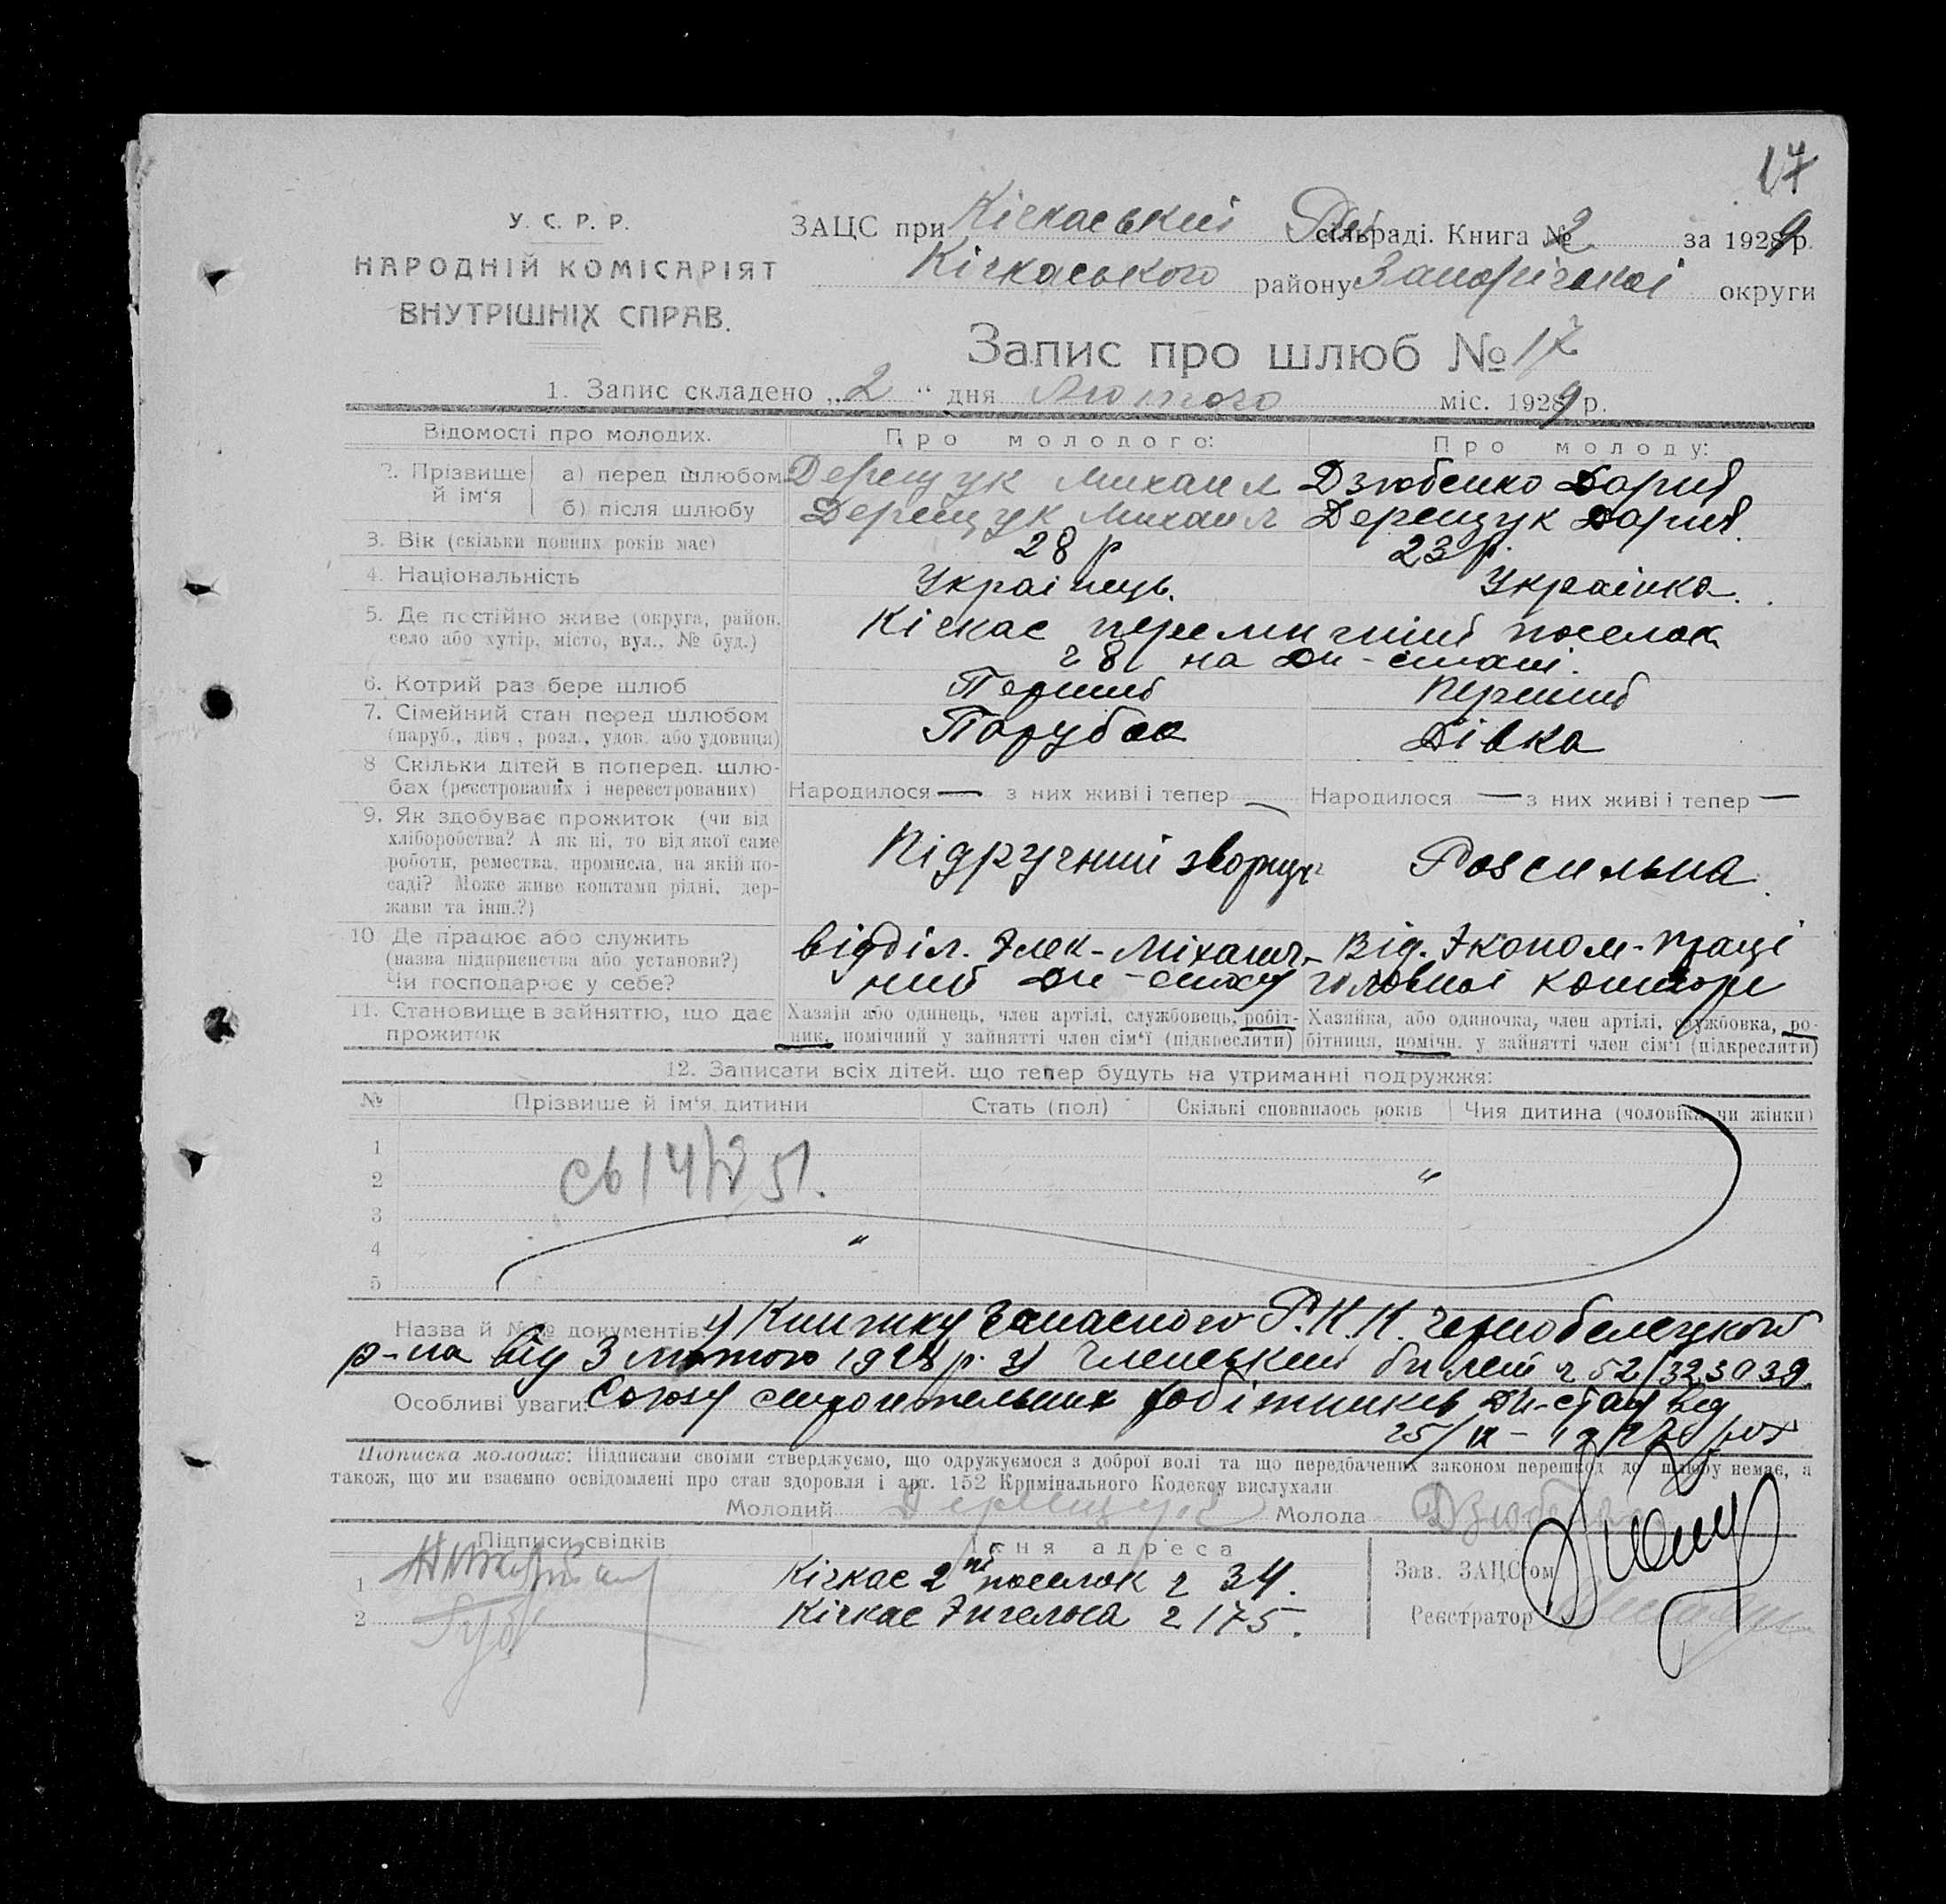 17
У. С. Р. Р.
НАРОДНІЙ КОМІСАРІЯТ
ВНУТРІШНІХ СПРАВ.
ЗАЦС при Кічкаський сільраді. Книга № 2 за 1929 р.
Кічкаського району Запорізької округи
Запис про шлюб № 17
1. Запис складено „2“ дня Лютого міс. 1929 р.
Відомості про молодих. Про молодого: Про молоду:
2. Прізвище й ім'я а) перед шлюбом Дерещук Михаил Дзюбенко Дария
б) після шлюбу Дерещук Михаил Дерещук Дария.
3. Вік (скільки повних років має) 28 р 23 р.
4. Національність Українець. Українка.
5. Де постійно живе (округа, район, село або хутір, місто, вул., № буд.) Кічкас поселок
28 на Дн-стані.
6. Котрий раз бере шлюб Перший Перший
7. Сімейний стан перед шлюбом Парубок Дівка
(паруб., дівч., розл., удов. або удовиця)
8 Скільки дітей в поперед. шлю-
бах (реєстрованих і нереєстрованих) Народилося — з них живі і тепер — Народилося — з них живі і тепер —
9. Як здобуває прожиток (чи від
хліборобства? А як ні, то від якої саме
роботи, ремества, промисла, на якій по-
саді? Може живе коштами рідні, дер-
жави та інш.?) Підручний Розсильна.
10 Де працює або служить відділ. Элек-Міханич- Від. Эконом-праці
(назва підприємства або установи?)
Чи господарює у себе? ний Дн-стану головної контори
11. Становище в зайняттю, що дає
прожиток
Хазяїн або одинець, член артілі, службовець, робіт-
ник, помічний у зайнятті член сім'ї (підкреслити)
Хазяйка, або одиночка, член артілі, службовка, ро-
бітниця, помічн. у зайнятті член сім'ї (підкреслити)
12. Записати всіх дітей, що тепер будуть на утриманні подружжя:
№ Прізвище й ім'я дитини Стать (пол) Скількі сповнилось років Чия дитина (чоловіка чи жінки)
1
2
3
4
5
Назва й №№ документів: 1) Книжку Запасного Р.К.К.
р-на від 3 лютого 1928 р. 2) Членський билет 52/323039
Особливі уваги: Союзу строительних робітників Дн-стану від
25/IX-
Підписка молодих: Підписами своїми стверджуємо, що одружуємося з доброї волі та що передбачених законом перешкод до шлюбу немає, а
також, що ми взаємно освідомлені про стан здоровля і арт. 152 Кримінального Кодексу вислухали
Молодий Дерещук Молода Дзюбенко
Підписи свідків Їхня адреса
1 Кічкас 2й поселок 34.
2 Кічкас Энгельса 175.
Зав. ЗАЦС'ом
Реєстратор